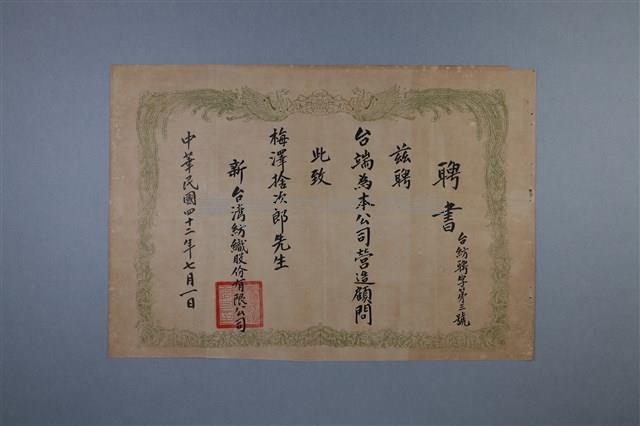 聘書
台紡聘字第三號
茲聘
台端為本公司營造顧問
此致
梅澤捨次郎先生
新台灣紡織股份有限公司
中華民國四十二年七月一日